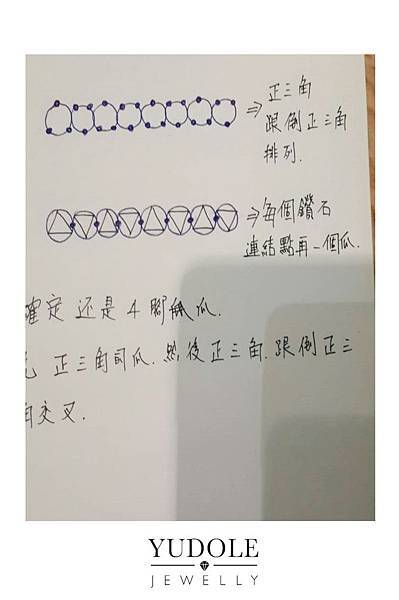 ⇒ 正三角
跟倒正三角
排列.
⇒ 每個鑽石
連結點再一個爪.
確定 还是 4 腳 爪.
正三角 爪. 然後正三角. 跟倒正三
交叉.
YUDOLE
JEWELLY